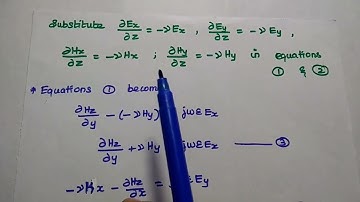 Substitute ∂Ex/∂z = -νEx , ∂Ey/∂z = -νEy ,
∂Hx/∂z = -νHx ; ∂Hy/∂z = -νHy in equations
① & ②
* Equations ① becom
∂Hz/∂y - (-νHy) jωεEx
∂Hz/∂y + νHy jωεEx —— ③
-νHx - ∂Hz/∂x = jωεEy